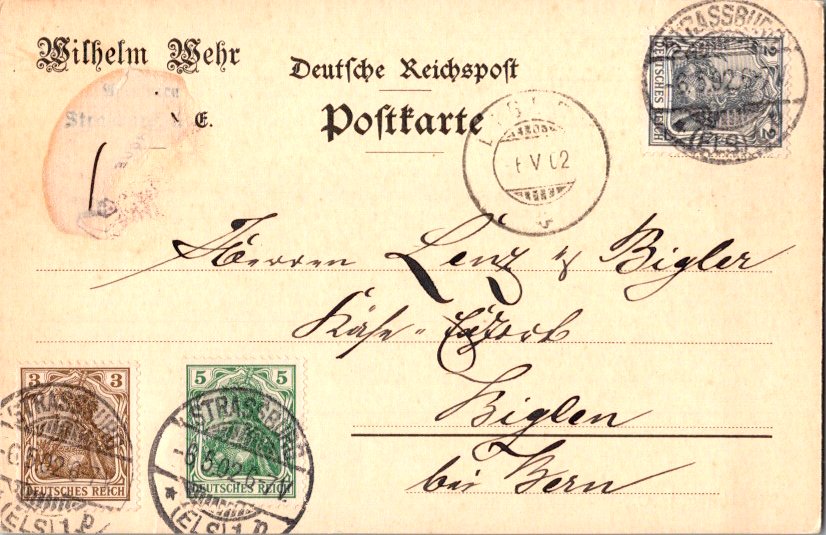 Wilhelm Wehr
E.
Deutsche Reichspost
Postkarte
2 2
DEUTSCHES REICH
STRASSBURG
6.5.02.
* (ELS)
BIGLEN
V 02
Herren Lenz & Bigler
Käse-Export
Biglen
bei Bern
3 3
DEUTSCHES REICH
STRASSBURG
6.5.02.
(ELS) 1 p
5 5
DEUTSCHES REICH
STRASSBURG
6.5.02.
* (ELS) 1 p